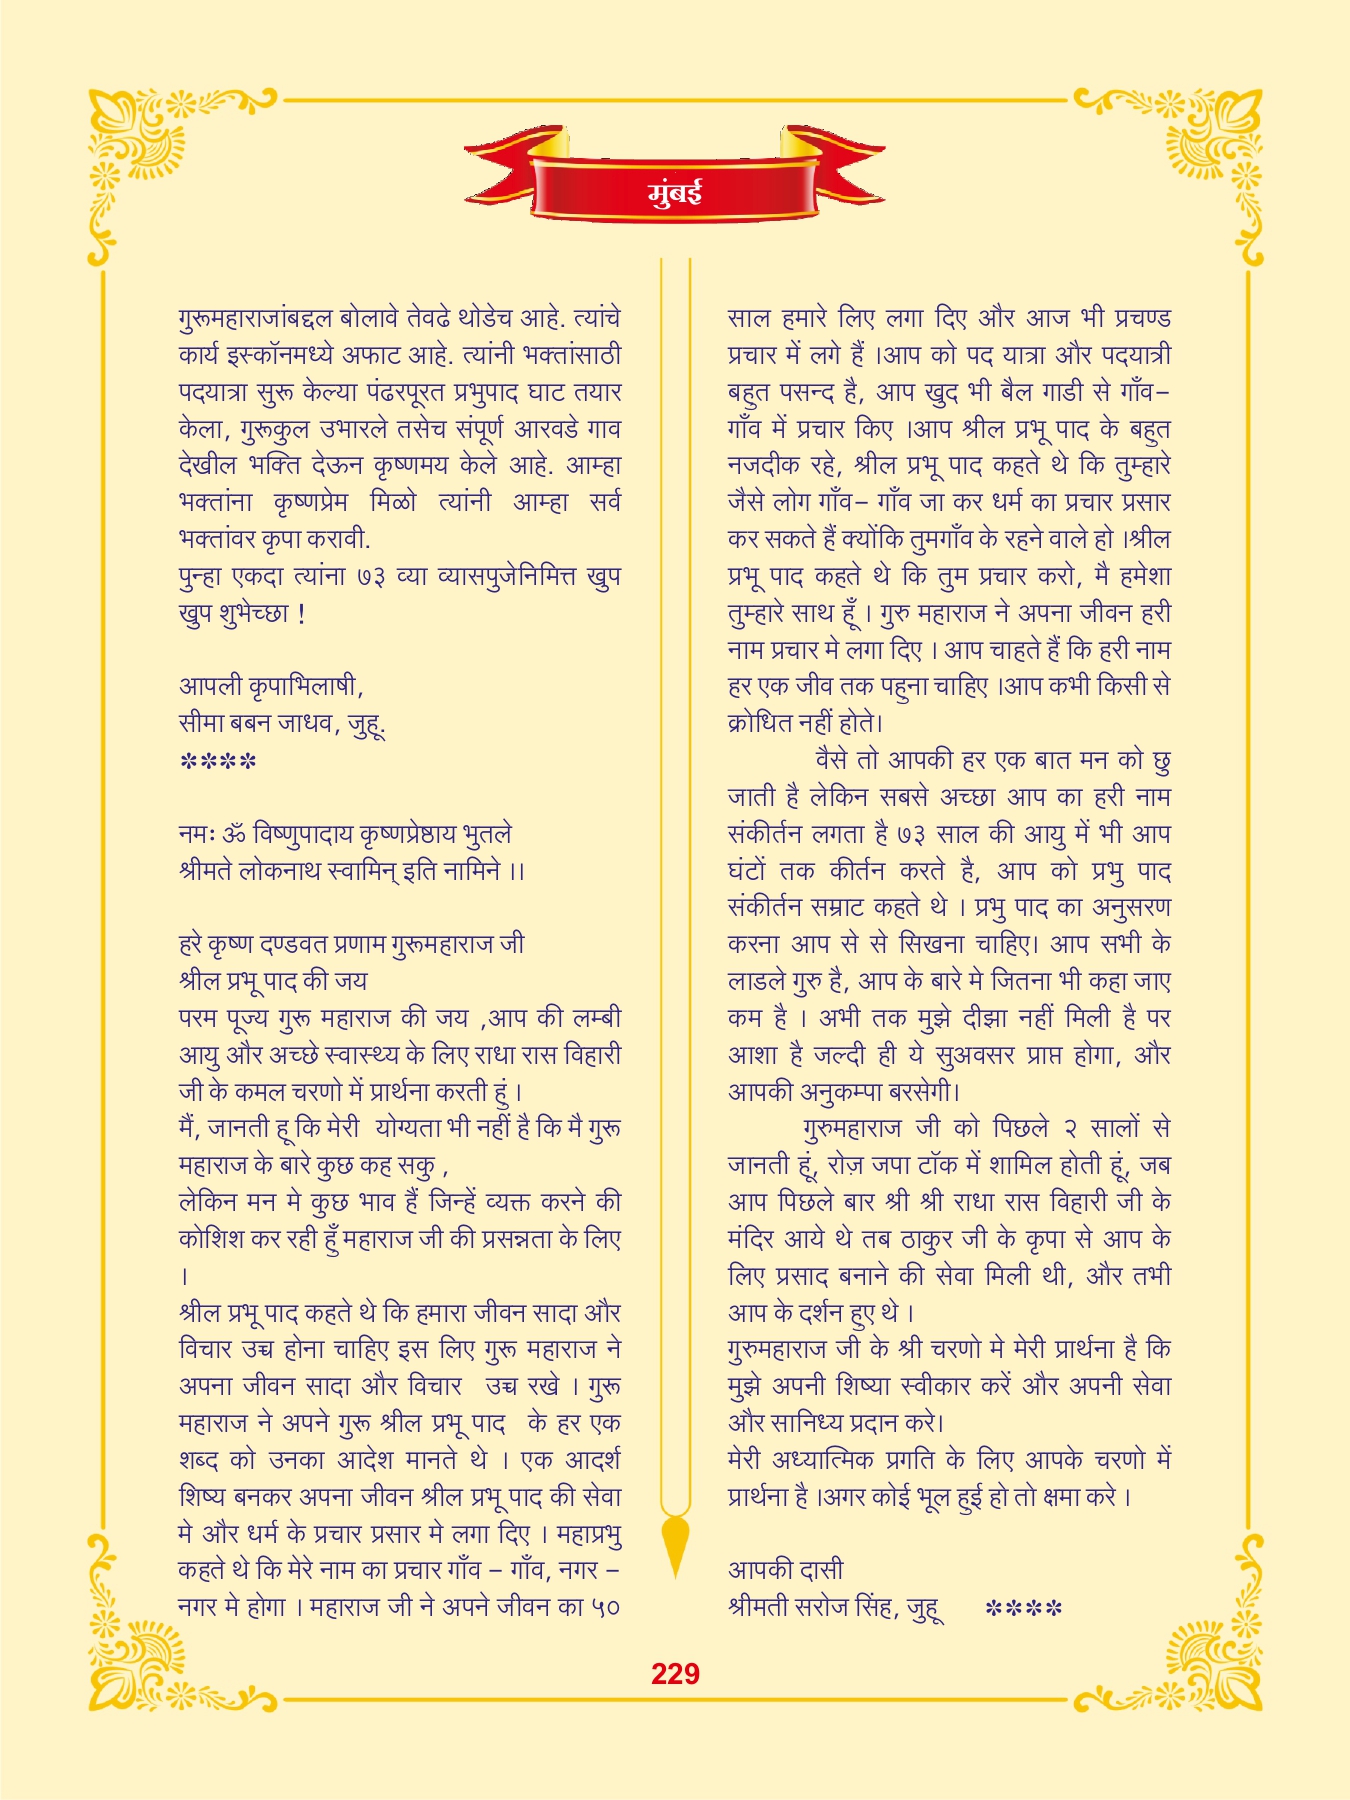 मुंबई
गुरूमहाराजांबद्दल बोलावे तेवढे थोडेच आहे. त्यांचे
कार्य इस्कॉनमध्ये अफाट आहे. त्यांनी भक्तांसाठी
पदयात्रा सुरू केल्या पंढरपूरत प्रभुपाद घाट तयार
केला, गुरूकुल उभारले तसेच संपूर्ण आरवडे गाव
देखील भक्ति देऊन कृष्णमय केले आहे. आम्हा
भक्तांना कृष्णप्रेम मिळो त्यांनी आम्हा सर्व
भक्तांवर कृपा करावी.
पुन्हा एकदा त्यांना ७३ व्या व्यासपुजेनिमित्त खुप
खुप शुभेच्छा !
आपली कृपाभिलाषी,
सीमा बबन जाधव, जुहू.
****
नमः ॐ विष्णुपादाय कृष्णप्रेष्ठाय भुतले
श्रीमते लोकनाथ स्वामिन् इति नामिने ।।
हरे कृष्ण दण्डवत प्रणाम गुरूमहाराज जी
श्रील प्रभू पाद की जय
परम पूज्य गुरू महाराज की जय ,आप की लम्बी
आयु और अच्छे स्वास्थ्य के लिए राधा रास विहारी
जी के कमल चरणो में प्रार्थना करती हुं ।
मैं, जानती हू कि मेरी योग्यता भी नहीं है कि मै गुरू
महाराज के बारे कुछ कह सकु ,
लेकिन मन मे कुछ भाव हैं जिन्हें व्यक्त करने की
कोशिश कर रही हुँ महाराज जी की प्रसन्नता के लिए
।
श्रील प्रभू पाद कहते थे कि हमारा जीवन सादा और
विचार उच्च होना चाहिए इस लिए गुरू महाराज ने
अपना जीवन सादा और विचार उच्च रखे । गुरू
महाराज ने अपने गुरू श्रील प्रभू पाद के हर एक
शब्द को उनका आदेश मानते थे । एक आदर्श
शिष्य बनकर अपना जीवन श्रील प्रभू पाद की सेवा
मे और धर्म के प्रचार प्रसार मे लगा दिए । महाप्रभु
कहते थे कि मेरे नाम का प्रचार गाँव – गाँव, नगर –
नगर मे होगा । महाराज जी ने अपने जीवन का ५०
साल हमारे लिए लगा दिए और आज भी प्रचण्ड
प्रचार में लगे हैं ।आप को पद यात्रा और पदयात्री
बहुत पसन्द है, आप खुद भी बैल गाडी से गाँव–
गाँव में प्रचार किए ।आप श्रील प्रभू पाद के बहुत
नजदीक रहे, श्रील प्रभू पाद कहते थे कि तुम्हारे
जैसे लोग गाँव– गाँव जा कर धर्म का प्रचार प्रसार
कर सकते हैं क्योंकि तुमगाँव के रहने वाले हो ।श्रील
प्रभू पाद कहते थे कि तुम प्रचार करो, मै हमेशा
तुम्हारे साथ हूँ । गुरु महाराज ने अपना जीवन हरी
नाम प्रचार मे लगा दिए । आप चाहते हैं कि हरी नाम
हर एक जीव तक पहुना चाहिए ।आप कभी किसी से
क्रोधित नहीं होते।
वैसे तो आपकी हर एक बात मन को छु
जाती है लेकिन सबसे अच्छा आप का हरी नाम
संकीर्तन लगता है ७३ साल की आयु में भी आप
घंटों तक कीर्तन करते है, आप को प्रभु पाद
संकीर्तन सम्राट कहते थे । प्रभु पाद का अनुसरण
करना आप से से सिखना चाहिए। आप सभी के
लाडले गुरु है, आप के बारे मे जितना भी कहा जाए
कम है । अभी तक मुझे दीझा नहीं मिली है पर
आशा है जल्दी ही ये सुअवसर प्राप्त होगा, और
आपकी अनुकम्पा बरसेगी।
गुरुमहाराज जी को पिछले २ सालों से
जानती हूं, रोज़ जपा टॉक में शामिल होती हूं, जब
आप पिछले बार श्री श्री राधा रास विहारी जी के
मंदिर आये थे तब ठाकुर जी के कृपा से आप के
लिए प्रसाद बनाने की सेवा मिली थी, और तभी
आप के दर्शन हुए थे ।
गुरुमहाराज जी के श्री चरणो मे मेरी प्रार्थना है कि
मुझे अपनी शिष्या स्वीकार करें और अपनी सेवा
और सानिध्य प्रदान करे।
मेरी अध्यात्मिक प्रगति के लिए आपके चरणो में
प्रार्थना है ।अगर कोई भूल हुई हो तो क्षमा करे ।
आपकी दासी
श्रीमती सरोज सिंह, जुहू ****
229